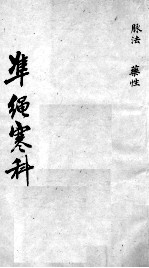 脉法 藥性
準繩寒科